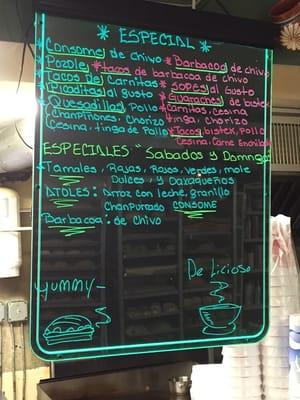 * ESPECIAL *
* Consome de chivo * Barbacoa de chivo
* Pozole * tacos de barbacoa de chivo
* Tacos De Carnitas * SOPES al Gusto
* Picaditas al gusto * Guaraches de bistek
* Quesadillas Pollo Carnitas, Cesina
Champiñones, Chorizo tinga, Chorizo
Cesina, tinga de Pollo * Tacos bistek, Pollo
Cesina, Carne Enchilada
ESPECIALES " Sabados y Domingos
* Tamales, Rajas, Rojos, Verdes, mole
Dulces, y Oaxaqueños
* ATOLES: Arroz con leche, granillo
Champurrado CONSOME
* Barbacoa: de chivo
YUMMY-
Delicioso